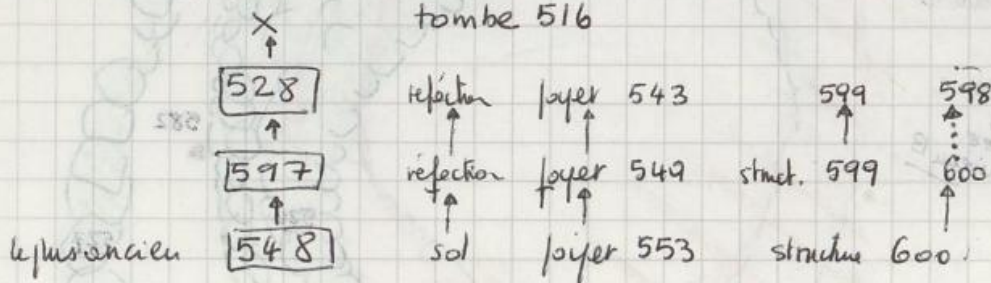 X tombe 516
528 réfection foyer 543 599 598
597 réfection foyer 549 struct. 599 600
le plus ancien 548 sol foyer 553 structure 600